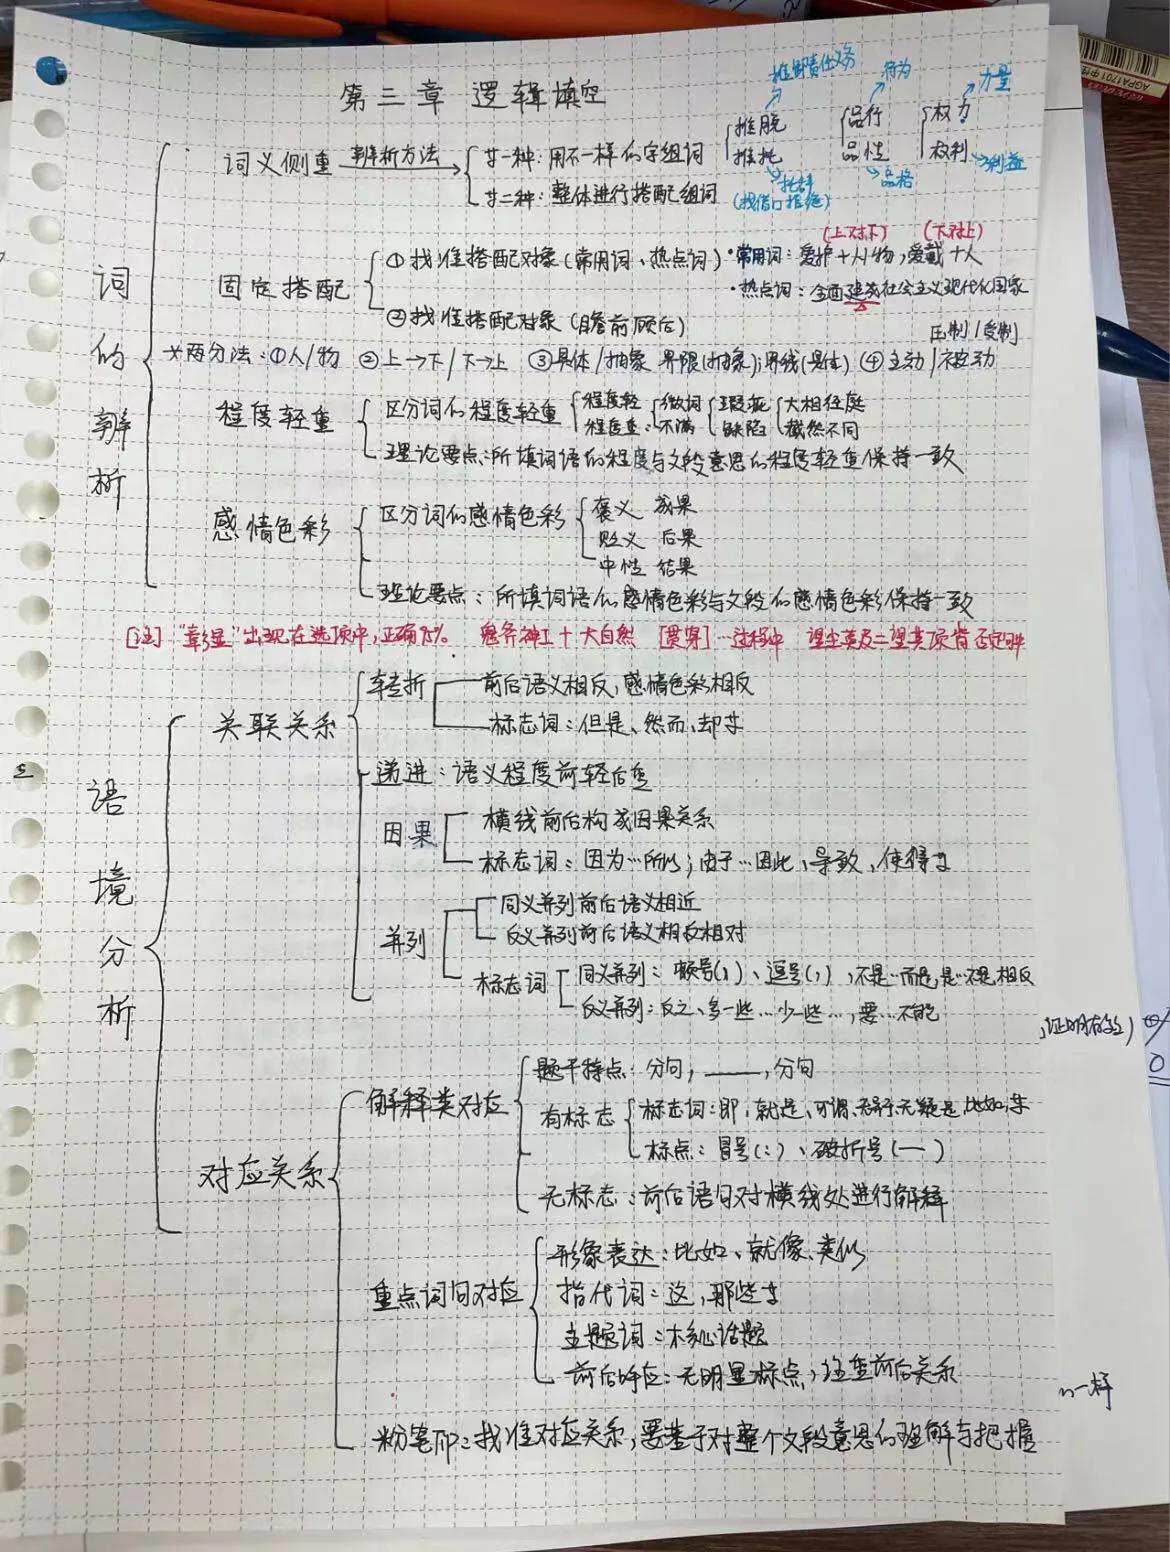 第三章 逻辑填空
推卸责任义务 行为 力量
推脱 品行 权力
推托 品性 权利
托辞 品格 利益
(找借口拒绝)
词的辨析
词义侧重 辨析方法 第一种：用不一样的字组词
第二种：整体进行搭配组词
固定搭配 ①找准搭配对象(常用词、热点词)
②找准搭配对象(瞻前顾后)
(上对下) (下对上)
·常用词：爱护+人/物，爱戴+人
·热点词：全面建成社会主义现代化国家
压制/受制
两分法：①人/物 ②上→下/下→上 ③具体/抽象 界限(抽象)；界线(具体) ④主动/被动
程度轻重 区分词的程度轻重 程度轻： 微词 瑕疵 大相径庭
程度重： 不满 缺陷 截然不同
理论要点：所填词语的程度与文段意思的程度轻重保持一致
感情色彩 区分词的感情色彩 褒义 成果
贬义 后果
中性 结果
理论要点：所填词语的感情色彩与文段的感情色彩保持一致
[注] "彰显"出现在选项中，正确75% 鬼斧神工+大自然 [贯穿]…过程中 望尘莫及=望其项背否定时
语境分析
关联关系 转折 前后语义相反，感情色彩相反
标志词：但是、然而、却等
递进：语义程度前轻后重
因果 横线前后构成因果关系
标志词：因为…所以；由于…因此、导致、使得等
并列 同义并列前后语义相近
反义并列前后语义相反相对
标志词 同义并列：顿号(、)、逗号(，)，不是…而是，是…不是相反
反义并列：反之、多一些…少一些…，要…不能
对应关系 解释类对应 题干特点：分句，____，分句
有标志 标志词：即、就是、可谓、无异于、无疑是、比如，等
标点：冒号(：)、破折号(—)
无标志：前后语句对横线处进行解释
重点词句对应 形象表达：比如、就像、类似
指代词：这，那些等
主题词：核心话题
前后呼应：无明显标点，注重前后关系
粉笔tip：找准对应关系，要基于对整个文段意思的理解与把握
一样